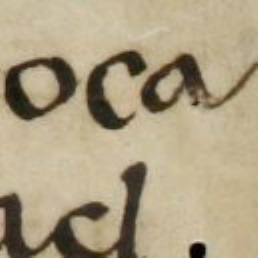 oca
acl.